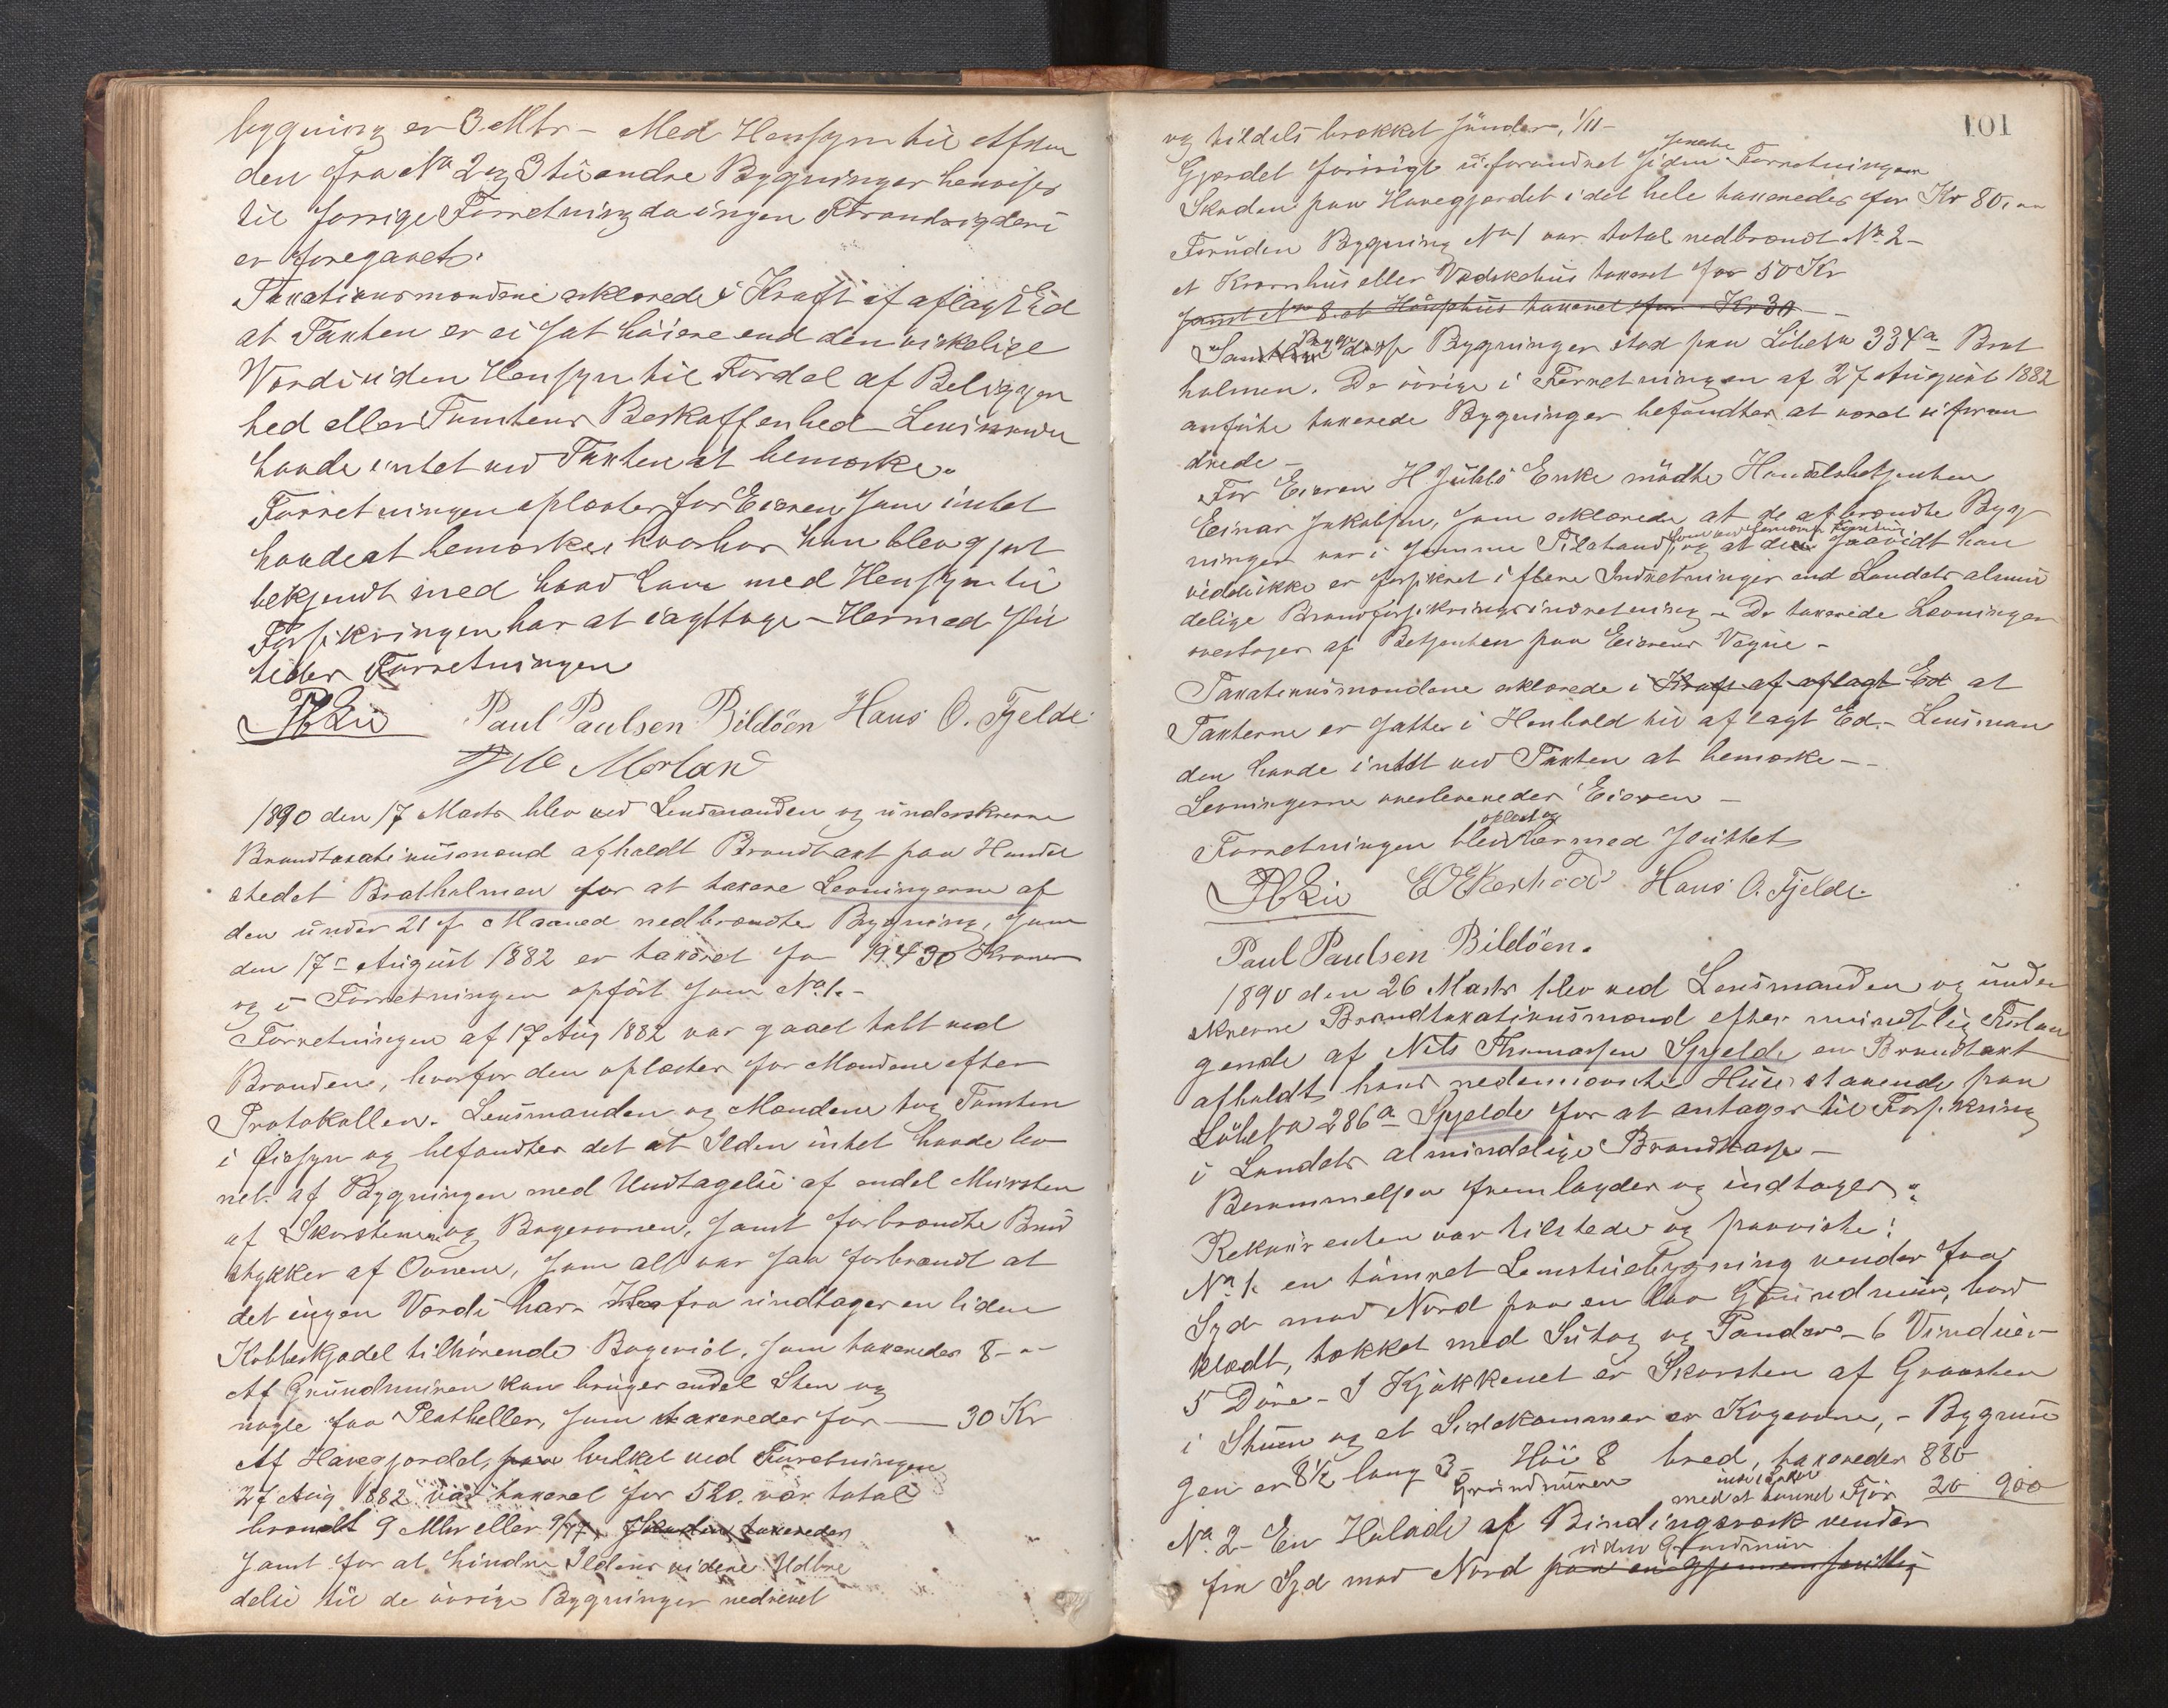 bygning er 3 Mtr – Med Hensyn til Afstan
den fra No 2 og 3 til andre Bygninger henvises
til forrige Forretning da ingen Forandring deri
er foregaaet.
Taxationsmændene erklærede i Kraft af aflagt Ed
at Taxten er ei sat høiere end den virkelige
Værdi uden Hensyn til Fordel af Beliggen
hed eller Tomtens Beskaffenhed – Lensmanden
havde intet ved Taxten at bemærke.
Forretningen oplæstes for Eieren som intet
havde at bemærke, hvorhos han blev gjort
bekjendt med hvad han med Hensyn til
Forsikringen har at iagttage – Hermed slu
ttedes Forretningen
Paul Paulsen Bildöen Hans O. Fjelde
Morland
1890 den 17 Marts blev ved Lensmanden og underskrevne
Brandtaxationsmænd afholdt Brandtaxt paa Handel
stedet Bratholmen for at taxere Levningerne af
den under 21 f Maaned nedbrændte Bygning, som
den 17de August 1882 er taxeret for 19430 Kroner
og i Forretningen opført som No 1. –
Forretningen af 17 Aug 1882 var gaaet tabt ved
Branden, hvorfor den oplæstes for Mændene efter
Protokollen. Lensmanden og Mændene tog Tomten
i Øiesyn og befandtes det at Ilden intet havde lev
net af Bygningen med Undtagelse af endel Mursten
af Skorstenen og Bagerovnen, samt forbrændte Brud
stykker af Ovnene, som alt var saa forbrændt at
det ingen Værdi har. Herfra undtages en liden
Kobberkjedel tilhørende Bageriet, som taxeredes 8 – "
Af Grundmuren kan bruges endel Sten og
nogle faa Platheller, som taxeredes for — 30 Kr
Af Havegjerdet, paa hvilket ved Forretningen
27 Aug 1882 var taxeret for 520. var total
brændt 9 Mtr eller 9/77, Skaden taxeredes
samt for at hindre Ildens videre Udbre
delse til de øvrige Bygninger nedrevet
101
og tildels brækket sønder, 1/11 –
Gjærdet forøvrigt uforandret siden seneste Forretningen
Skaden paa Havegjærdet i det hele taxeredes for Kr 80,00
Foruden Bygning No 1 var total nedbrændt No 2 –
et Kvernhus eller Vadskehus taxeret for 50 Kr
samt No 8 et Hönsehus taxeret for Kr 30 –
Bygninger stod paa Löbe No 334a Brat
holmen. De övrige i Forretningen af 27 August 1882
anførte taxerede Bygninger befandtes at været uforan
drede –
For Eieren H Jübbs Enke mödte Handelsbetjenten
Einar Jakobsen, som erklærede at de afbrændte Byg
ninger var i samme Tilstand og at de saavidt han
vidste ikke er forsikret i flere Indretninger end Landets almin
delige Brandforsikringsindretning – De taxerede Levninger
overtages af Betjenten paa Eierens Vegne –
Taxationsmændene erklærede i Kraft af aflagt Ed at
Taxterne er satte i Henhold til aflagt Ed – Lensman
den havde intet ved Taxten at bemærke – –
Levningerne overleveredes Eieren –
Forretningen blev oplæst og hermed sluttet
Hans O. Fjelde.
Paul Paulsen Bildöen.
1890 den 26 Marts blev ved Lensmanden og under
skrevne Brandtaxationsmænd efter mundtlig Forlan
gende af Nils Thomassen Spjelde en Brandtaxt
afholdt hans nedennævnte Huse staaende paa
Löbe No 286a Spjelde for at antages til Forsikring
i Landets almindelige Brandkasse –
Berammelsen fremlagdes og indtages:
Rekvirenten var tilstede og paaviste:
No 1. en tömret Lemstuebygning vender fra
Syd mod Nord paa en lav Grundmur, bord
klædt, tækket med Sutag og Pander – 6 Vinduer
5 Döre – I Kjökkenet er Skorsten af Graasten
i Stuen og et Sidekammer er Kogeovne, – Bygnin
gen er 8½ lang 3 – Höi 8 bred, taxeredes 880
Grundmuren inde i Kjelder med et tömret For 20 900
No 2 – En Hölade af Bindingsværk vender
fra Syd mod Nord uden Grundmur paa en gjennemsnittlig